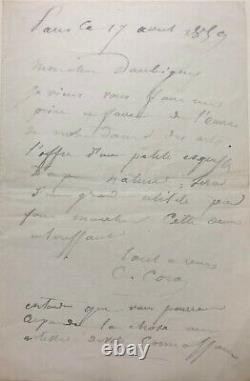 Paris ce 17 avril 1859
Monsieur Daubigny
Je viens vous faire une
prière en faveur de l'œuvre
de notre dame des arts
l'offre d'une petite esquisse
d'après nature sera
d'un grand utilité pour
faire marcher cette œuvre
intéressante
tout a vous
C. Corot
que vous pourrez
la chose aux
artistes de votre connaissance
ebay